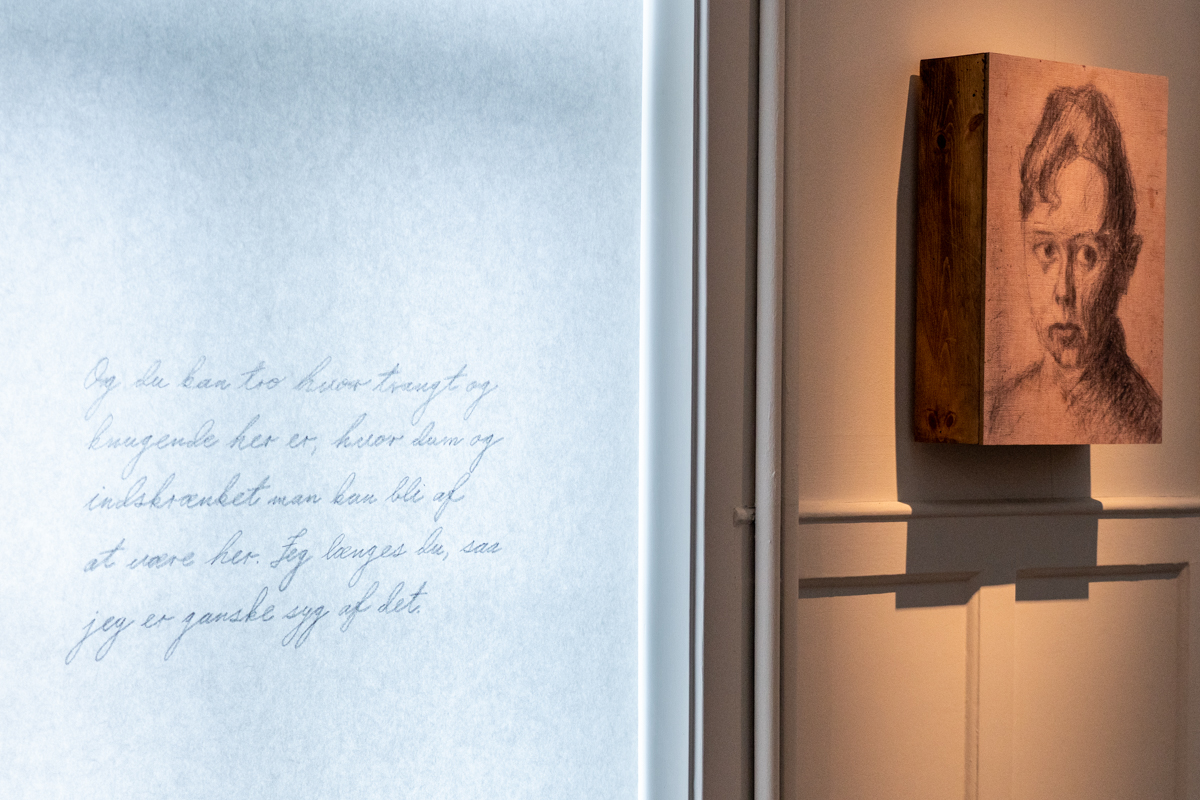 Og du kan tro hvor trangt og
knugende her er, hvor dum og
indskrænket man kan bli af
at være her. Jeg længes du, saa
jeg er ganske syg af det.